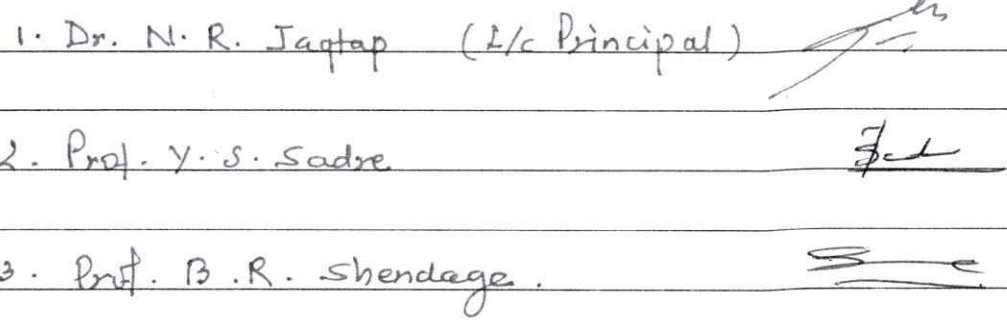 1. Dr. N. R. Jagtap (I/c Principal)
2. Prof. Y. S. Sadre
3. Prof. B. R. Shendage.